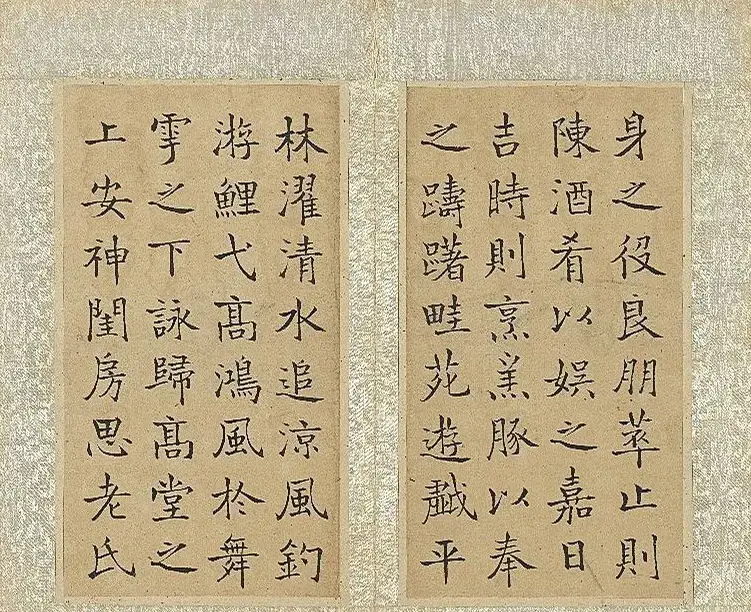 身之役良朋萃止則
陳酒肴以娛之嘉日
吉時則烹羔豚以奉
之躊躇畦苑遊戱平
林濯清水追涼風釣
游鯉弋髙鴻風於舞
雩之下詠歸髙堂之
上安神閨房思老氏